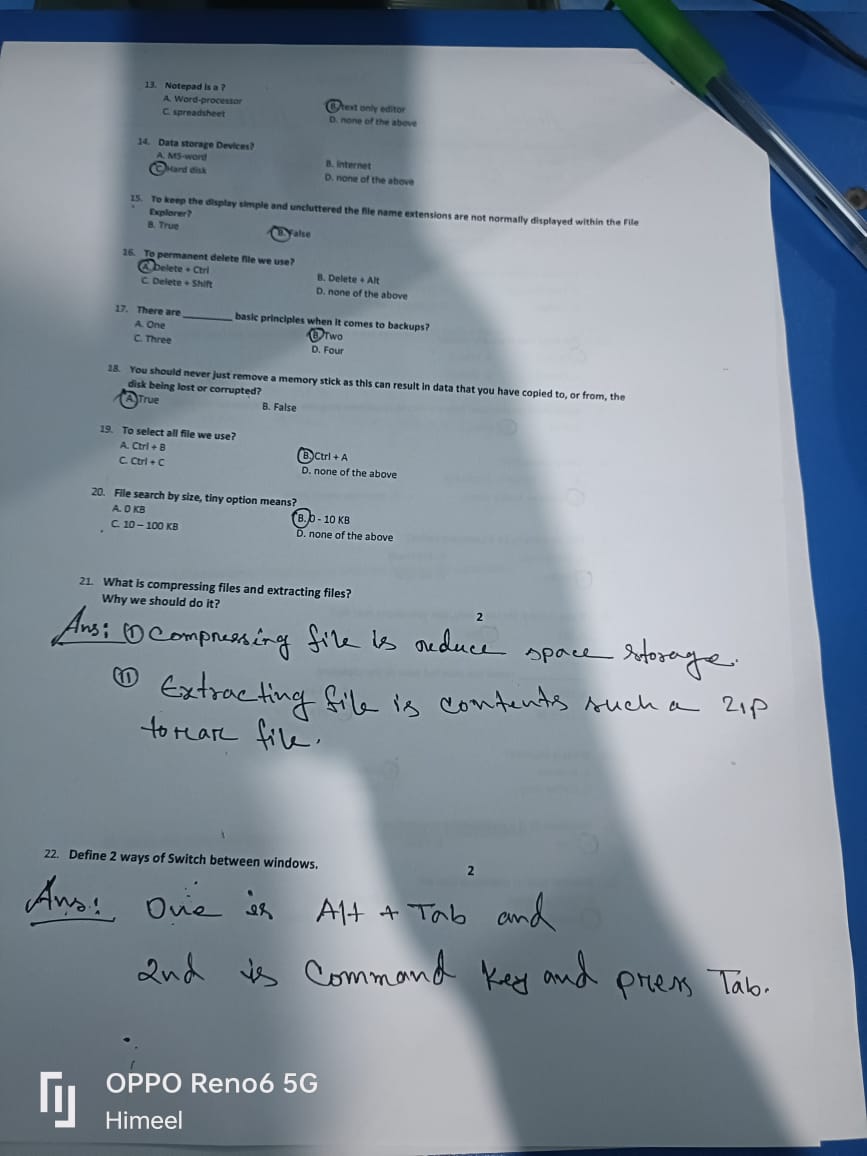 13. Notepad is a ?
A. Word-processor B. text only editor
C. spreadsheet D. none of the above
14. Data storage Devices?
A. MS-word B. Internet
C. Hard disk D. none of the above
15. To keep the display simple and uncluttered the file name extensions are not normally displayed within the File
Explorer?
B. True B. False
16. To permanent delete file we use?
A. Delete + Ctrl B. Delete + Alt
C. Delete + Shift D. none of the above
17. There are ________ basic principles when it comes to backups?
A. One B. Two
C. Three D. Four
18. You should never just remove a memory stick as this can result in data that you have copied to, or from, the
disk being lost or corrupted?
A. True B. False
19. To select all file we use?
A. Ctrl + B B. Ctrl + A
C. Ctrl + C D. none of the above
20. File search by size, tiny option means?
A. 0 KB B. 0 - 10 KB
C. 10 – 100 KB D. none of the above
21. What is compressing files and extracting files?
Why we should do it? 2
Ans: (I) Compressing file is reduce space storage.
(II) Extracting file is contents such a zip
to rar file.
22. Define 2 ways of Switch between windows. 2
Ans: One is Alt + Tab and
2nd is Command Key and press Tab.
OPPO Reno6 5G
Himeel